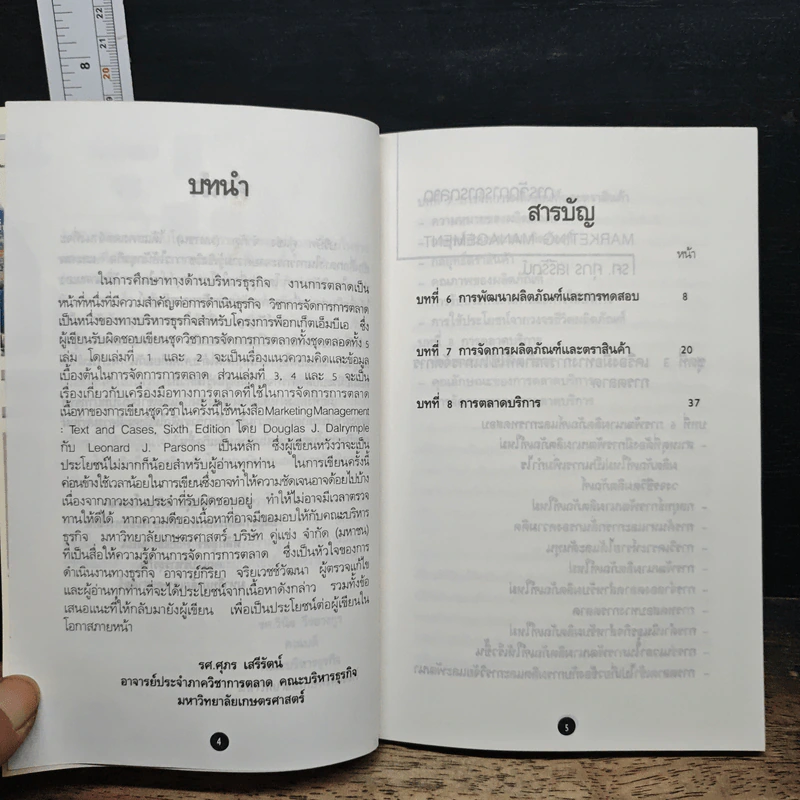 8
20
21
บทนำ
ในการศึกษาทางด้านบริหารธุรกิจ งานการตลาดเป็น
หน้าที่หนึ่งที่มีความสำคัญต่อการดำเนินธุรกิจ วิชาการจัดการการตลาด
เป็นหนึ่งของทางบริหารธุรกิจสำหรับโครงการพ็อกเก็ตเอ็มบีเอ ซึ่ง
ผู้เขียนรับผิดชอบเขียนชุดวิชาการจัดการการตลาดทั้งชุดตลอดทั้ง 5
เล่ม โดยเล่มที่ 1 และ 2 จะเป็นเรื่องแนวความคิดและข้อมูล
เบื้องต้นในการจัดการการตลาด ส่วนเล่มที่ 3, 4 และ 5 จะเป็น
เรื่องเกี่ยวกับเครื่องมือทางการตลาดที่ใช้ในการจัดการการตลาด
เนื้อหาของการเขียนชุดวิชาในครั้งนี้ใช้หนังสือ Marketing Management
: Text and Cases, Sixth Edition โดย Douglas J. Dalrymple
กับ Leonard J. Parsons เป็นหลัก ซึ่งผู้เขียนหวังว่าจะเป็น
ประโยชน์ไม่มากก็น้อยสำหรับผู้อ่านทุกท่าน ในการเขียนครั้งนี้
ค่อนข้างใช้เวลาน้อยในการเขียนซึ่งอาจทำให้ความชัดเจนอาจด้อยไปบ้าง
เนื่องจากภาวะงานประจำที่รับผิดชอบอยู่ ทำให้ไม่อาจมีเวลาตรวจ
ทานให้ดีได้ หากความดีของเนื้อหาที่อาจมีขอมอบให้กับคณะบริหาร
ธุรกิจ มหาวิทยาลัยเกษตรศาสตร์ บริษัท คู่แข่ง จำกัด (มหาชน)
ที่เป็นสื่อให้ความรู้ด้านการจัดการการตลาด ซึ่งเป็นหัวใจของการ
ดำเนินงานทางธุรกิจ อาจารย์กิริยา จริยเวชช์วัฒนา ผู้ตรวจแก้ไข
และผู้อ่านทุกท่านที่จะได้ประโยชน์จากเนื้อหาดังกล่าว รวมทั้งข้อ
เสนอแนะที่ให้กลับมายังผู้เขียน เพื่อเป็นประโยชน์ต่อผู้เขียนใน
โอกาสภายหน้า
รศ.ศุภร เสรีรัตน์
อาจารย์ประจำภาควิชาการตลาด คณะบริหารธุรกิจ
มหาวิทยาลัยเกษตรศาสตร์
4
สารบัญ
หน้า
บทที่ 6 การพัฒนาผลิตภัณฑ์และการทดสอบ 8
บทที่ 7 การจัดการผลิตภัณฑ์และตราสินค้า 20
บทที่ 8 การตลาดบริการ 37
5